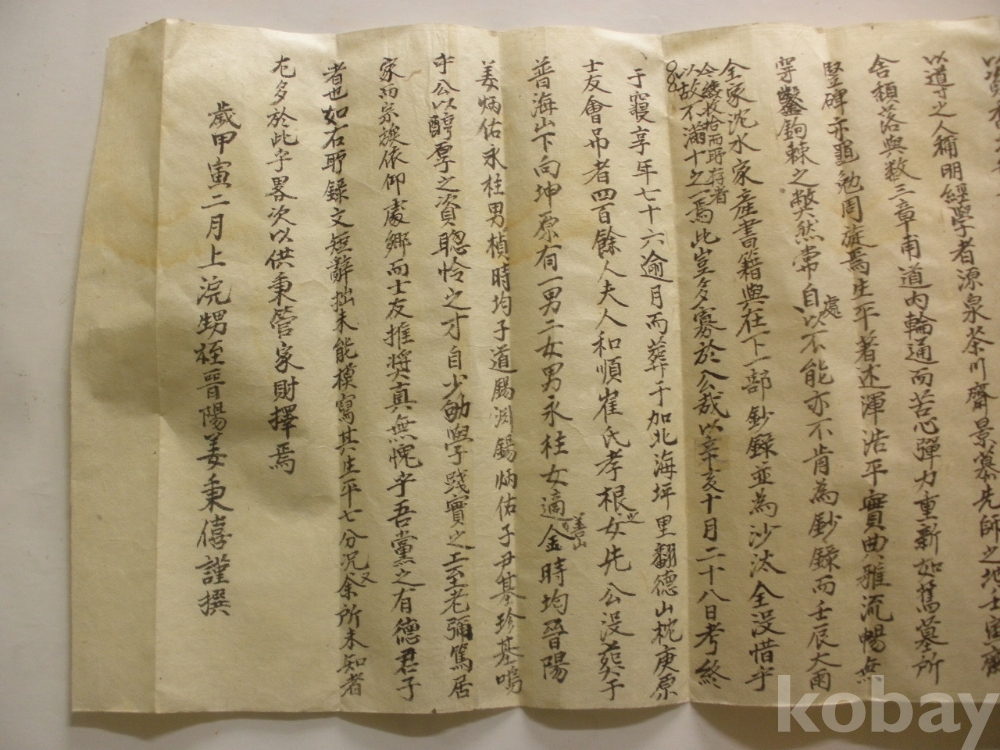 以道之人稱明經學者源泉茶川齋景慕先師之地士寅齋
舍頹落與数三章甫道内輪通而苦心彈力重新如舊墓所
竪碑亦黽勉周旋焉生平著述渾浩平實典雅流暢無
等鑿鉤棘之弊然常自處以不能亦不肯為鈔錄而壬辰大雨
全家沈水家產書籍與在下一部鈔錄並為沙汰全没惜乎
今纔收拾而所存者
以故不滿十之一焉此豈多寡於公哉以辛亥十月二十八日考終
于寢享年七十六逾月而葬于加北海坪里翻德山枕庚原
士友會吊者四百餘人夫人和順崔氏孝根之女先公没葬于
普海山下向坤原有一男二女男永柱女適善山金時均晉陽
姜炳佑永柱男楨時均子道錫淵錫炳佑子尹基珍基鳴
乎公以醇厚之資聰怜之才自少劬學踐實之工至老彌篤居
家而宗族依仰處鄉而士友推奬真無愧乎吾黨之有德君子
者也如右所錄文短辭拙未能模寫其生平七分況又余所未知者
尤多於此乎畧次以供秉管家財擇焉
歲甲寅二月上浣甥侄晉陽姜秉僖謹撰
kobay